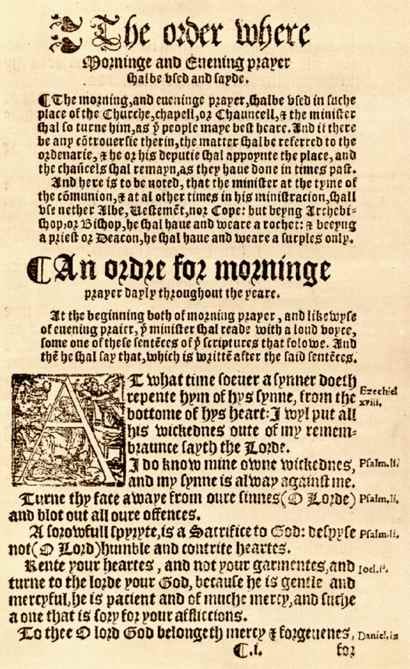 The order where
Morninge and Euening prayer
shalbe vsed and sayde.
¶ The morning, and eueninge prayer, shalbe vsed in suche
place of the Churche, chapell, or Chauncell, & the minister
shal so turne him, as yͤ people maye best heare. And if there
be any cōtrouersie therin, the matter shalbe referred to the
ordenarie, & he or his deputie shal appoynte the place, and
the chaūcels shal remayn, as they haue done in times past.
And here is to be noted, that the minister at the tyme of
the cōmunion, & at al other times in his ministracion, shall
vse nether Albe, Uestemēt, nor Cope: but beyng Archebi-
shop, or Bishop, he shal haue and weare a rochet: & beeyng
a priest or Deacon, he shal haue and weare a surples only.
¶ An ordre for morninge
prayer dayly throughout the yeare.
At the beginning both of morning prayer, and likewyse
of euening praier, yͤ minister shal reade with a loud voyce,
some one of these sentēces of yͤ scriptures that folowe. And
thē he shal say that, which is writtē after the said sentēces.
AT what time soeuer a synner doeth
repente hym of hys synne, from the
bottome of hys heart: I wyl put all
his wickednes oute of my remem-
braunce sayth the Lorde.
Ezechiel
xviii.
I do know mine owne wickednes,
and my synne is alway against me.
Psalm. li.
Turne thy face awaye from oure sinnes (O Lorde)
and blot out all oure offences.
Psalm. li.
A sorowfull spyryte, is a Sacrifice to God: despyse
not (O Lord) humble and contrite heartes.
Psalm. li.
Rente your heartes, and not your garmentes, and
turne to the lorde your God, because he is gentle and
mercyful, he is pacient and of muche mercy, and suche
a one that is sory for your afflictions.
Ioel. ii.
To thee O lord God belongeth mercy & forgeuenes,
Daniel. ix
¶.i. for